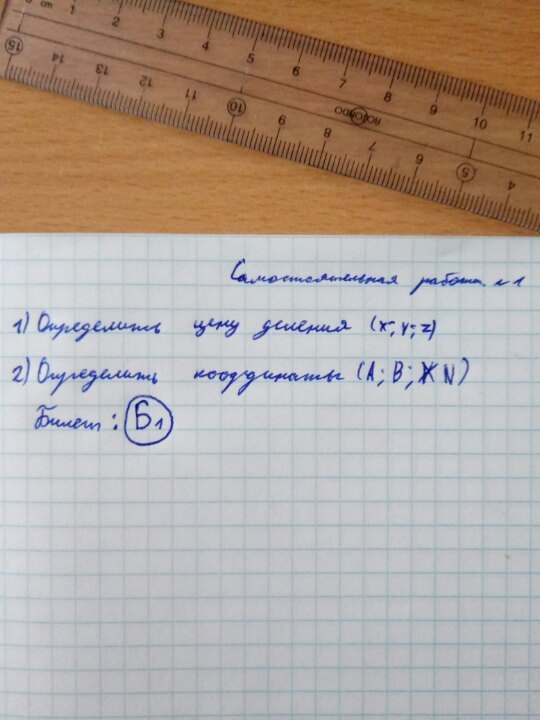 cm 1 2 3 4 5 6 7 8 9 10 11
15 14 13 12 11 10 9 8 7 6 5 4
Самостоятельная работа №1
1) Определить цену деления (x; y; z)
2) Определить координаты (A; B; N)
Билет: Б1